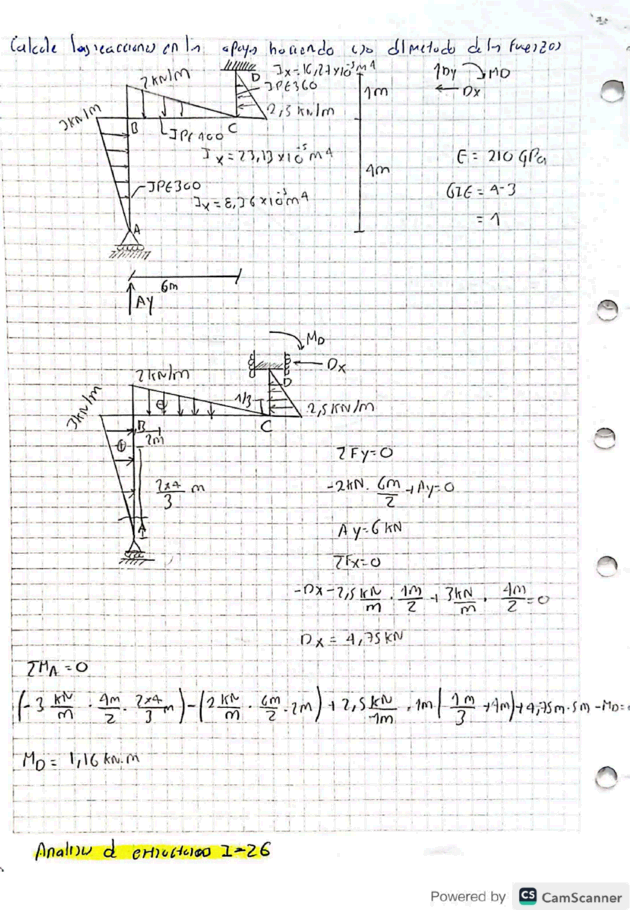 Calcule las reacciones en los apoyos haciendo uso del metodo de las Fuerzas
Ix=16,27x10⁻⁵m⁴
2KN/m
D
IPE360
1m
↑Dy MD
← Dx
3KN/m
2,5 KN/m
B
IPE400
C
Ix=23,13x10⁻⁵m⁴
4m
E=210 GPa
IPE300
Ix=8,36x10⁻⁵m⁴
GIE=4-3
=1
A
6m
↑AY
MD
2KN/m
Dx
D
3KN/m
1/3
2,5KN/m
B
C
2m
ΣFy=0
2x4/3 m
-2KN·6m/2+Ay=0
A
Ay=6KN
ΣFx=0
-Dx-2,5KN/m·1m/2+3KN/m·4m/2=0
Dx=4,75KN
ΣMA=0
(-3 KN/m·4m/2·2x4/3 m)-(2KN/m·6m/2·2m)+2,5KN/1m·1m(1m/3+4m)+4,75m·5m-MD=
MD=1,16KN·m
Analisis d estructuras I-26
Powered by CS CamScanner